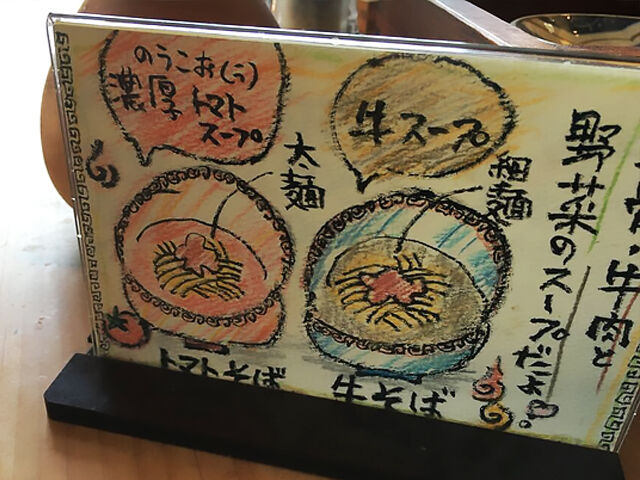 のうこお(う)
濃厚トマト
スープ
太麺
トマトそば
牛スープ
細麺
牛そば
牛肉と
野菜のスープだよ。